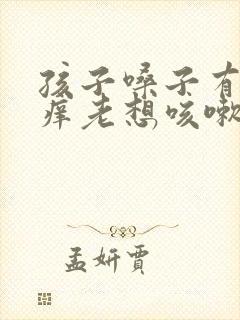 孩子嗓子有
痒老想咳嗽
孟妍贾